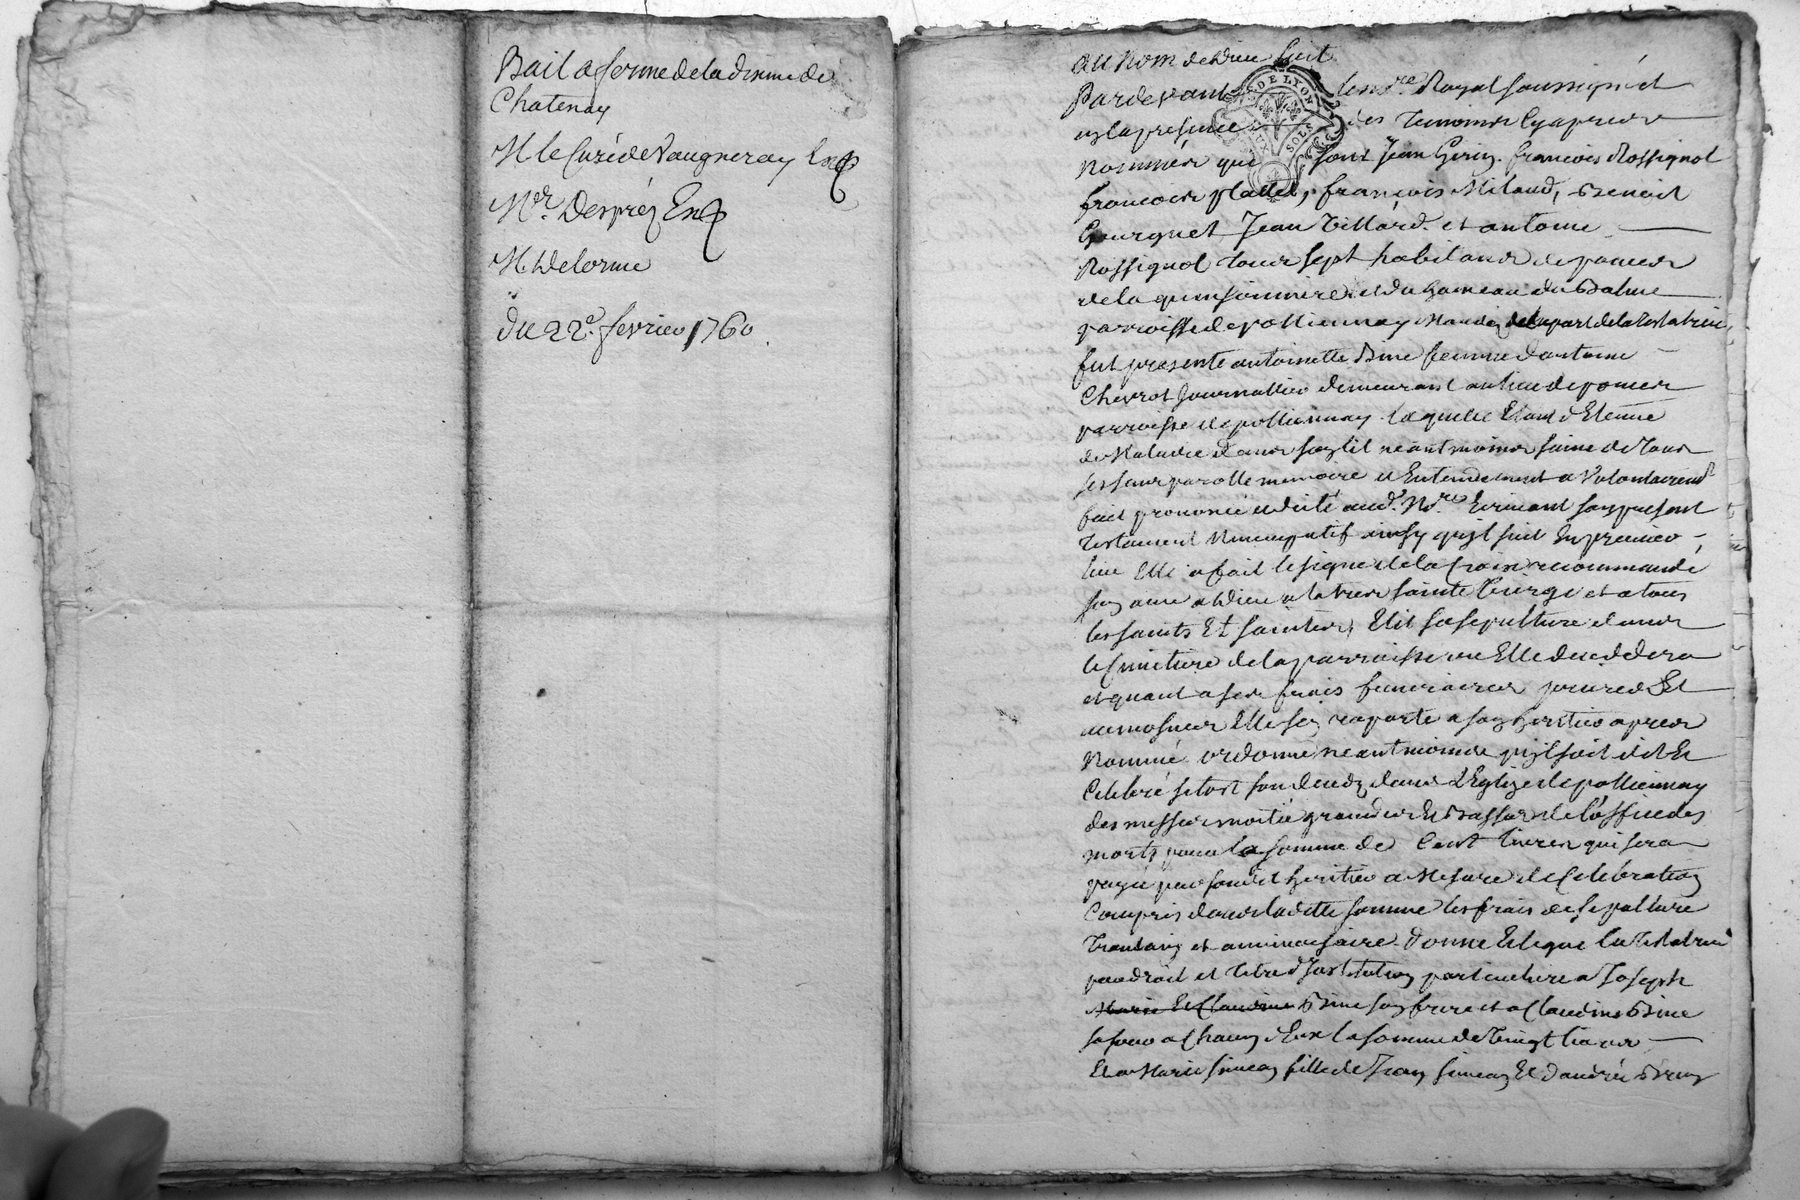 Bail a ferme de la disme de
Chatenay
M le Curé de Vaugneray
Mr. Desprez
M. Delorme
du 22e. fevrier 1760
au Nom de Dieu soit
Pardevant le Nore Royal soussigné et
en la presence des temoins cy apres
Nommés qui sont Jean françois Rossignol
françois françois Milaud, Benoit
Jean Villard et antoine
Rossignol tous sept habitans de
de la et du hameau du
parroisse de pollionnay de la part de la testatrice
fut presente antoinette femme d'antoine
journallier demeurant au lieu de
parroisse de pollionnay laquelle Etant detenue
de Maladie dans son lit neantmoins saine de tous
ses sens parolle memoire et Entendement a Volontairemt
fait prononcé et dicté aud. Nore Ecrivant son present
testament Nuncupatif ainsy quil suit En premier
lieu Elle a fait le signe de la Croix recommandé
son ame a Dieu a la tres sainte Vierge et a tous
les saints Et saintes, Elit sa sepulture dans
le Cimetiere de la parroisse ou Elle decedera
et quant a ses frais funeraires Et
aumosnes Elle sen raporte a son heritier apres
Nommé ordonne neantmoins quil soit dit Et
Celebré sitost son deces dans l'Eglize de pollionnay
des messes moitié grandes Et Basses de l'office des
morts pour la somme de Cent livres qui sera
payée par sondit heritier a Mesure de Celebration
Compris dans laditte somme les frais de sepulture
et anniversaire. donne Et legue la testatrice
par droit et titre d'Institution particuliere a Joseph
Marie Et Claudine son frere et a Claudine
sa soeur a Chacun d'Eux la somme de Vingt livres
Et a Marie fille de Jean Et d'andrée